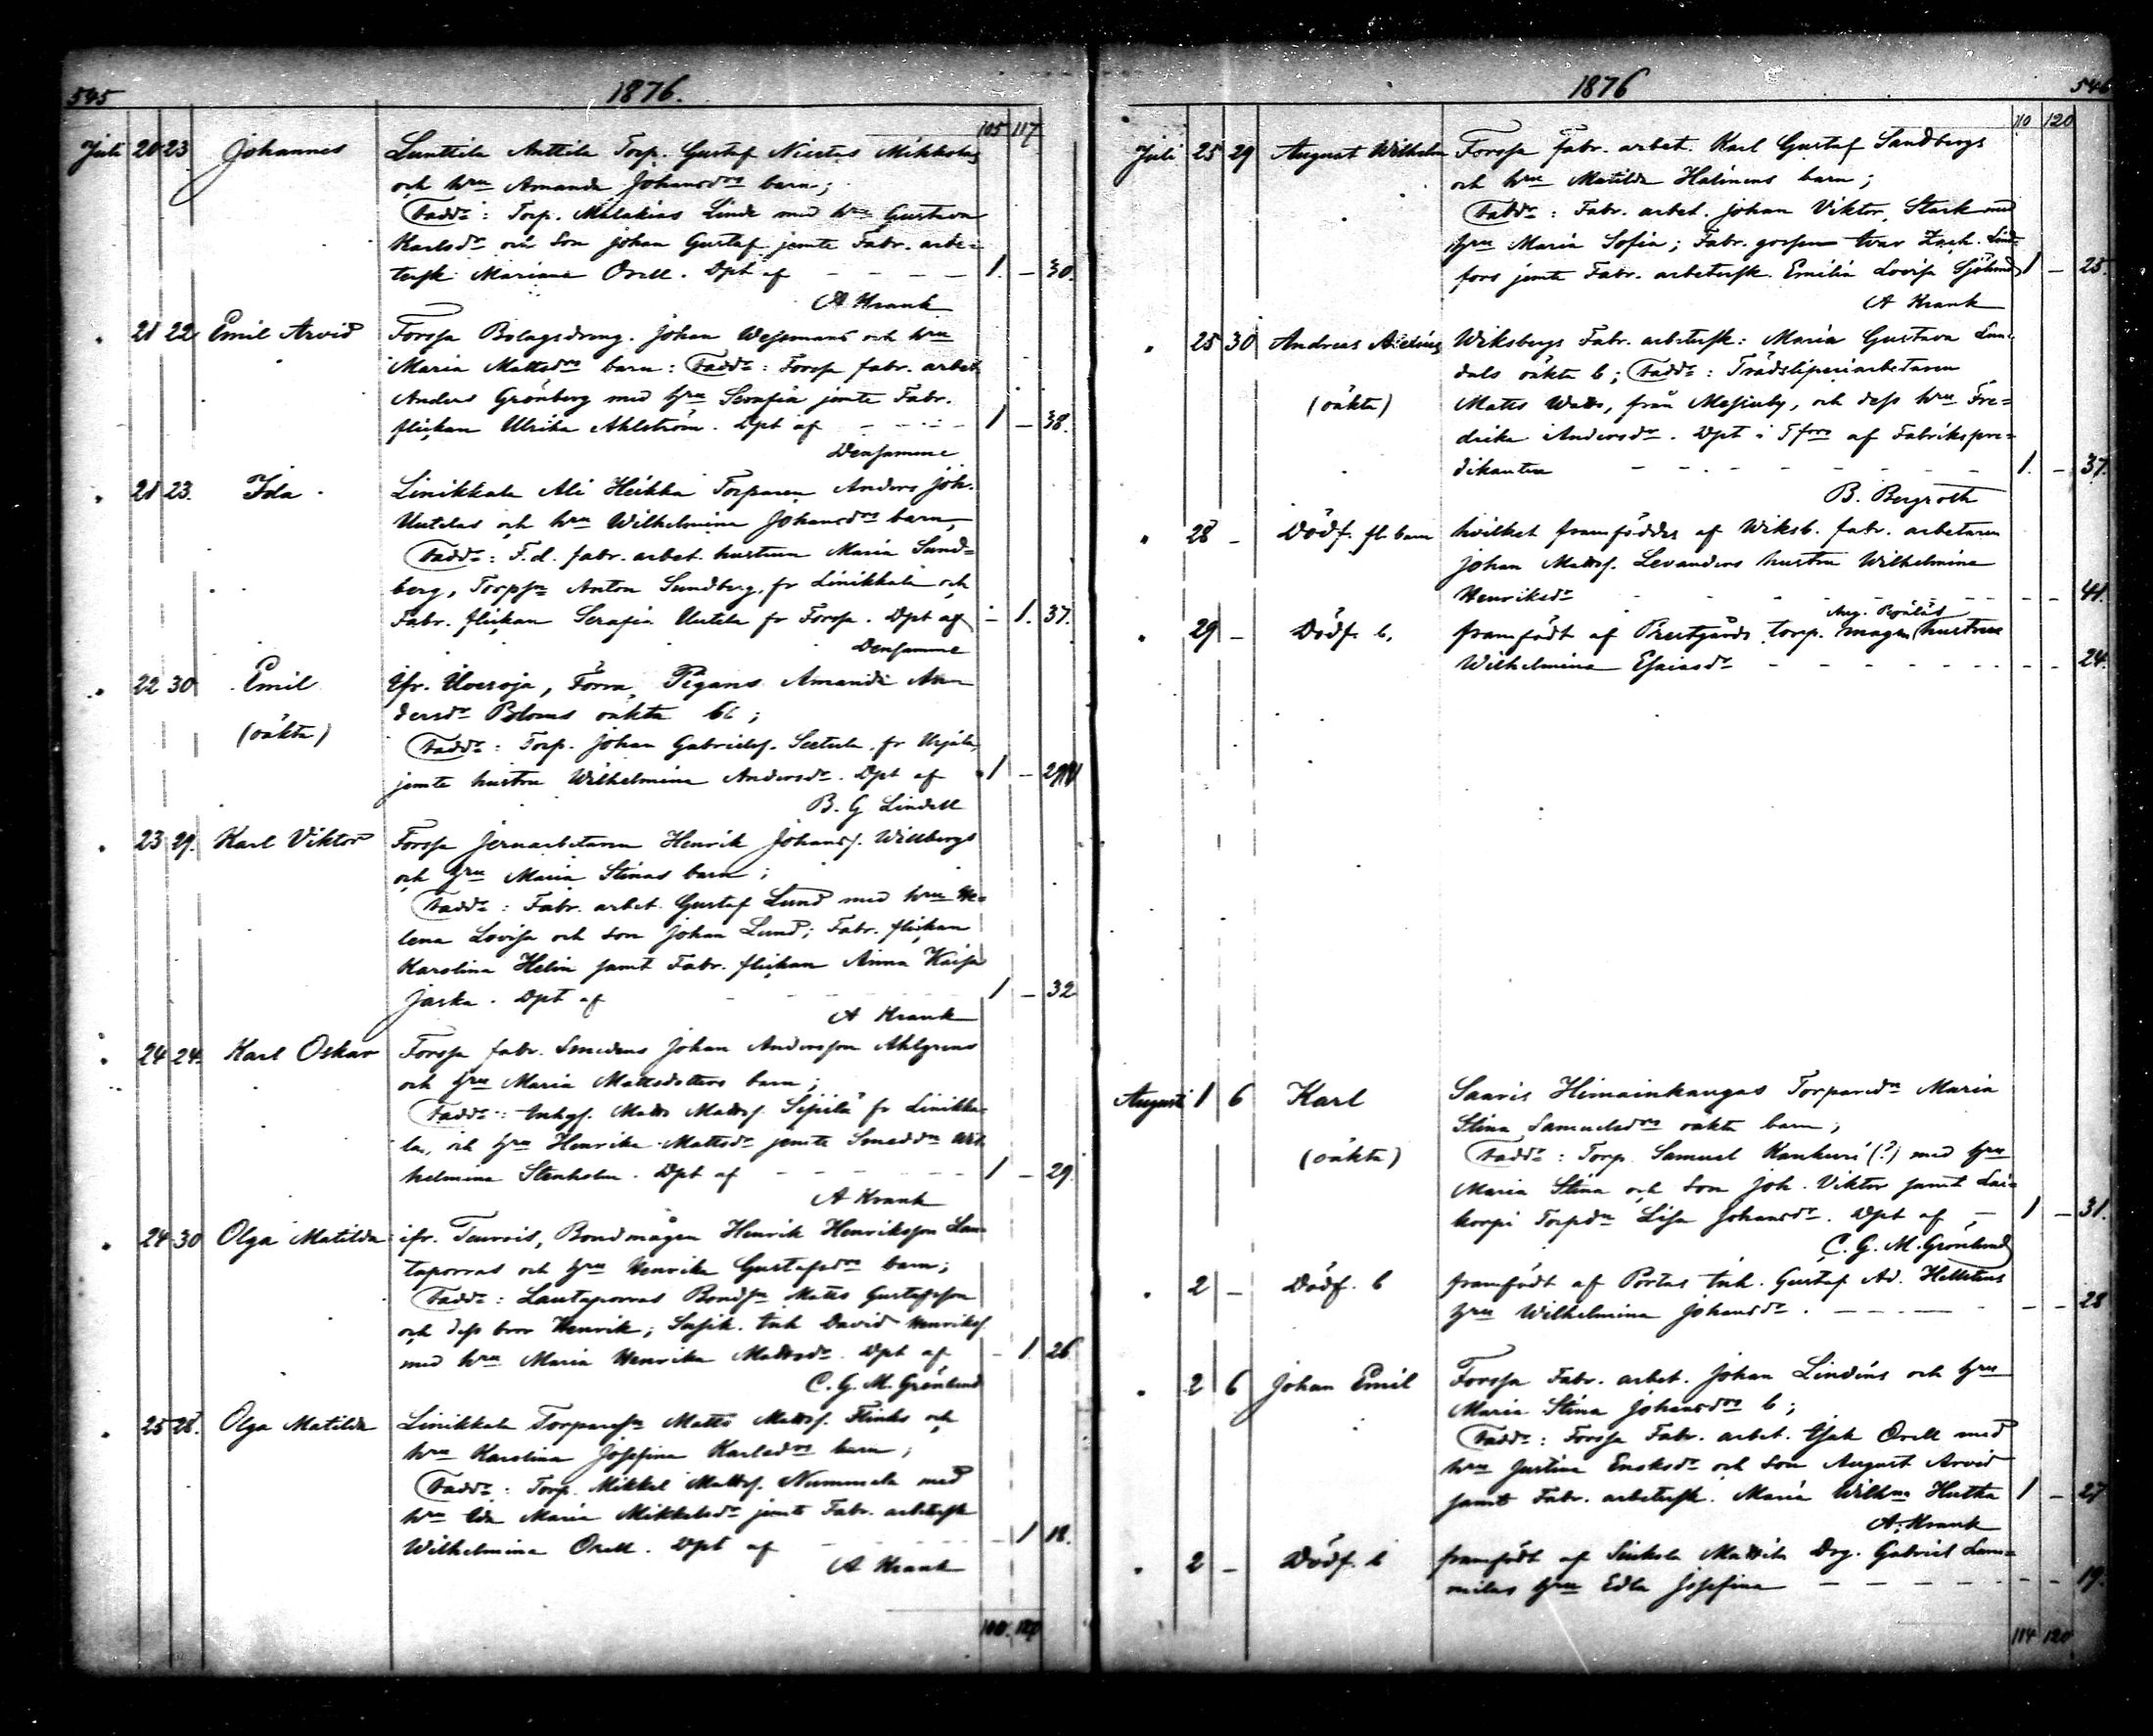 545 1876.
105 117
Juli 20 23 Johannes Lunttila Anttila Torp. Gustaf
och hru Amanda Johansdrs barn;
Fadd: Torp. Malakias Linde med hru Gustava
Karlsdr och Son Johan Gustaf jemte Fabr. arbe=
tersk. Mariana Orell. Dpt af — 1. — 30.
A Krank
" 21 22 Emil Arvid Forssa Bolagsdräng. Johan Wessmans och hru
Maria Mattsdrs barn: Fadd: Forssa fabr. arbet.
Anders Grönberg med hru Serafia jemte Fabr.
flickan Ulrika Ahlström. Dpt af — 1 — 38.
Densamme
" 21 23. Ida Linikkala Ali Heikka Torparen Anders Joh.
Uutelas och hru Wilhelmina Johansdrs barn,
Fadd: F.d. fabr. arbet. hustrun Maria Sund=
berg, Torpsn Anton Sundberg, fr Linikkala och
Fabr. flickan Serafia Uutela fr Forssa. Dpt af — 1. 37.
Densamme
" 22 30 Emil Ifr. Torra, Pigans Amanda An=
dersdr Bloms oäkta ;
(oäkta) Fadd: Torp. Johan Gabrielss. fr Urjala,
jemte hustru Wilhelmina Andersdr. Dpt af 1 —
B. G Lindell
" 23 29. Karl Viktor Forssa Jernarbetaren Henrik Johanss. Willbergs
och hru Maria Stinas barn;
Fadd: Fabr. arbet. Gustaf Lund med hru He=
lena Lovisa och son Johan Lund; Fabr. flickan
Karolina Helin samt Fabr. flickan Anna Kaisa
Jaska. Dpt af 1 — 32
A Krank
" 24 24. Karl Oskar Forssa fabr. Smedens Johan Andersson Ahlgrens
och hru Maria Mattsdotters barn;
Fadd: Inhys. Matts Mattss. Sipilä fr Linikka=
la, och hru Henrika Mattsdr jemte Smeddn Wil=
helmina Stenholm. Dpt af — 1 — 29.
A Krank
" 24 30 Olga Matilda ifr. Teurois, Bondmågen Henrik Henriksson Lau=
taporras och hru Henrika Gustafsdrs barn;
Fadd: Lautaporras Bondsn Matts Gustafsson
och dess bror Henrik; Susik. Inh David Henrikss.
med hru Maria Henrika Mattsdr. Dpt af — 1. 26.
C. G. M. Grönlund
" 25 28. Olga Matilda Linikkala Torparesn Matts Mattss. Flinks och
hru Karolina Josefina Karlsdrs barn;
Fadd: Torp. Mikkel Mattss. Nummela med
hru Ida Maria Mikkelsdr jemte Fabr. arbetersk
Wilhelmina Orell. Dpt af — 1 18.
A Krank
1876 546
110 120
Juli 25 29 August Wilhelm Forssa fabr. arbet. Karl Gustaf Sandbergs
och hru Matilda Halinens barn;
Fadd: Fabr. arbet. Johan Viktor Stark med
hru Maria Sofia; Fabr. gossen Ivar Zach. Lind=
fors jemte Fabr. arbetersk. Emilia Lovisa 1 — 25.
A Krank
" 25 30 Andreas Wiksbergs Fabr. arbetersk: Maria Gustava Lin=
dals oäkta b; Fadd: Trädsliperiarbetaren
(oäkta) Matts Watts, från Messuby, och dess hru Fre=
drika Andersdr. Dpt i Tfors af Fabrikspre=
dikanten — 1. — 37.
B. Bergroth
" 28 — Dödf. fl. barn hvilket framföddes af Wiksb. fabr. arbetaren
Johan Mattss. Levanders hustru Wilhelmina
Henriksdr — 41.
" 29 — Dödf. b. framfödt af Prestgårds torp. mågen Aug. hustrun
Wilhelmina Esaiasdr — 24.
Augusti 1 6 Karl Saaris Himainkangas Torparedn Maria
Stina Samuelsdrs oäkta barn;
(oäkta) Fadd: Torp. Samuel Kankuri (?) med hru
Maria Stina och Son Joh. Viktor samt Lai=
korpi Torpdn Lisa Johansdr. Dpt af — 1 — 31.
C. G. M. Grönlund
" 2 — Dödf. b framfödt af Portas Inh. Gustaf Ad. Hellstens
hru Wilhelmina Johansdr. — 28
" 2 6 Johan Emil Forssa Fabr. arbet. Johan Lindéns och hru
Maria Stina Johansdrs b;
Fadd: Forssa Fabr. arbet. Isak Orell med
hru Justina Enoksdr och Son August Arvid
samt Fabr. arbetersk. Maria Wilhna Hutka 1 — 27
A. Krank
" 2 — Dödf. b framfödt af Mattila Drg. Gabriel Lam=
milas hru Edla Josefina — 19.
114 120